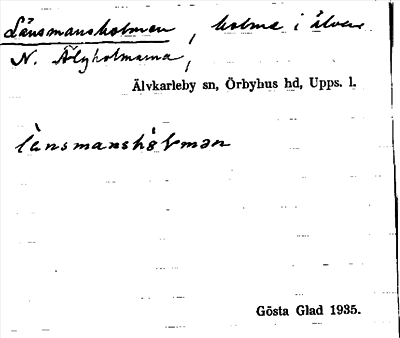 Länsmansholmen, holme i älven
N. Älgholmarna,
Älvkarleby sn, Örbyhus hd, Upps. l.
lànsmanshól̀mən
Gösta Glad 1935.